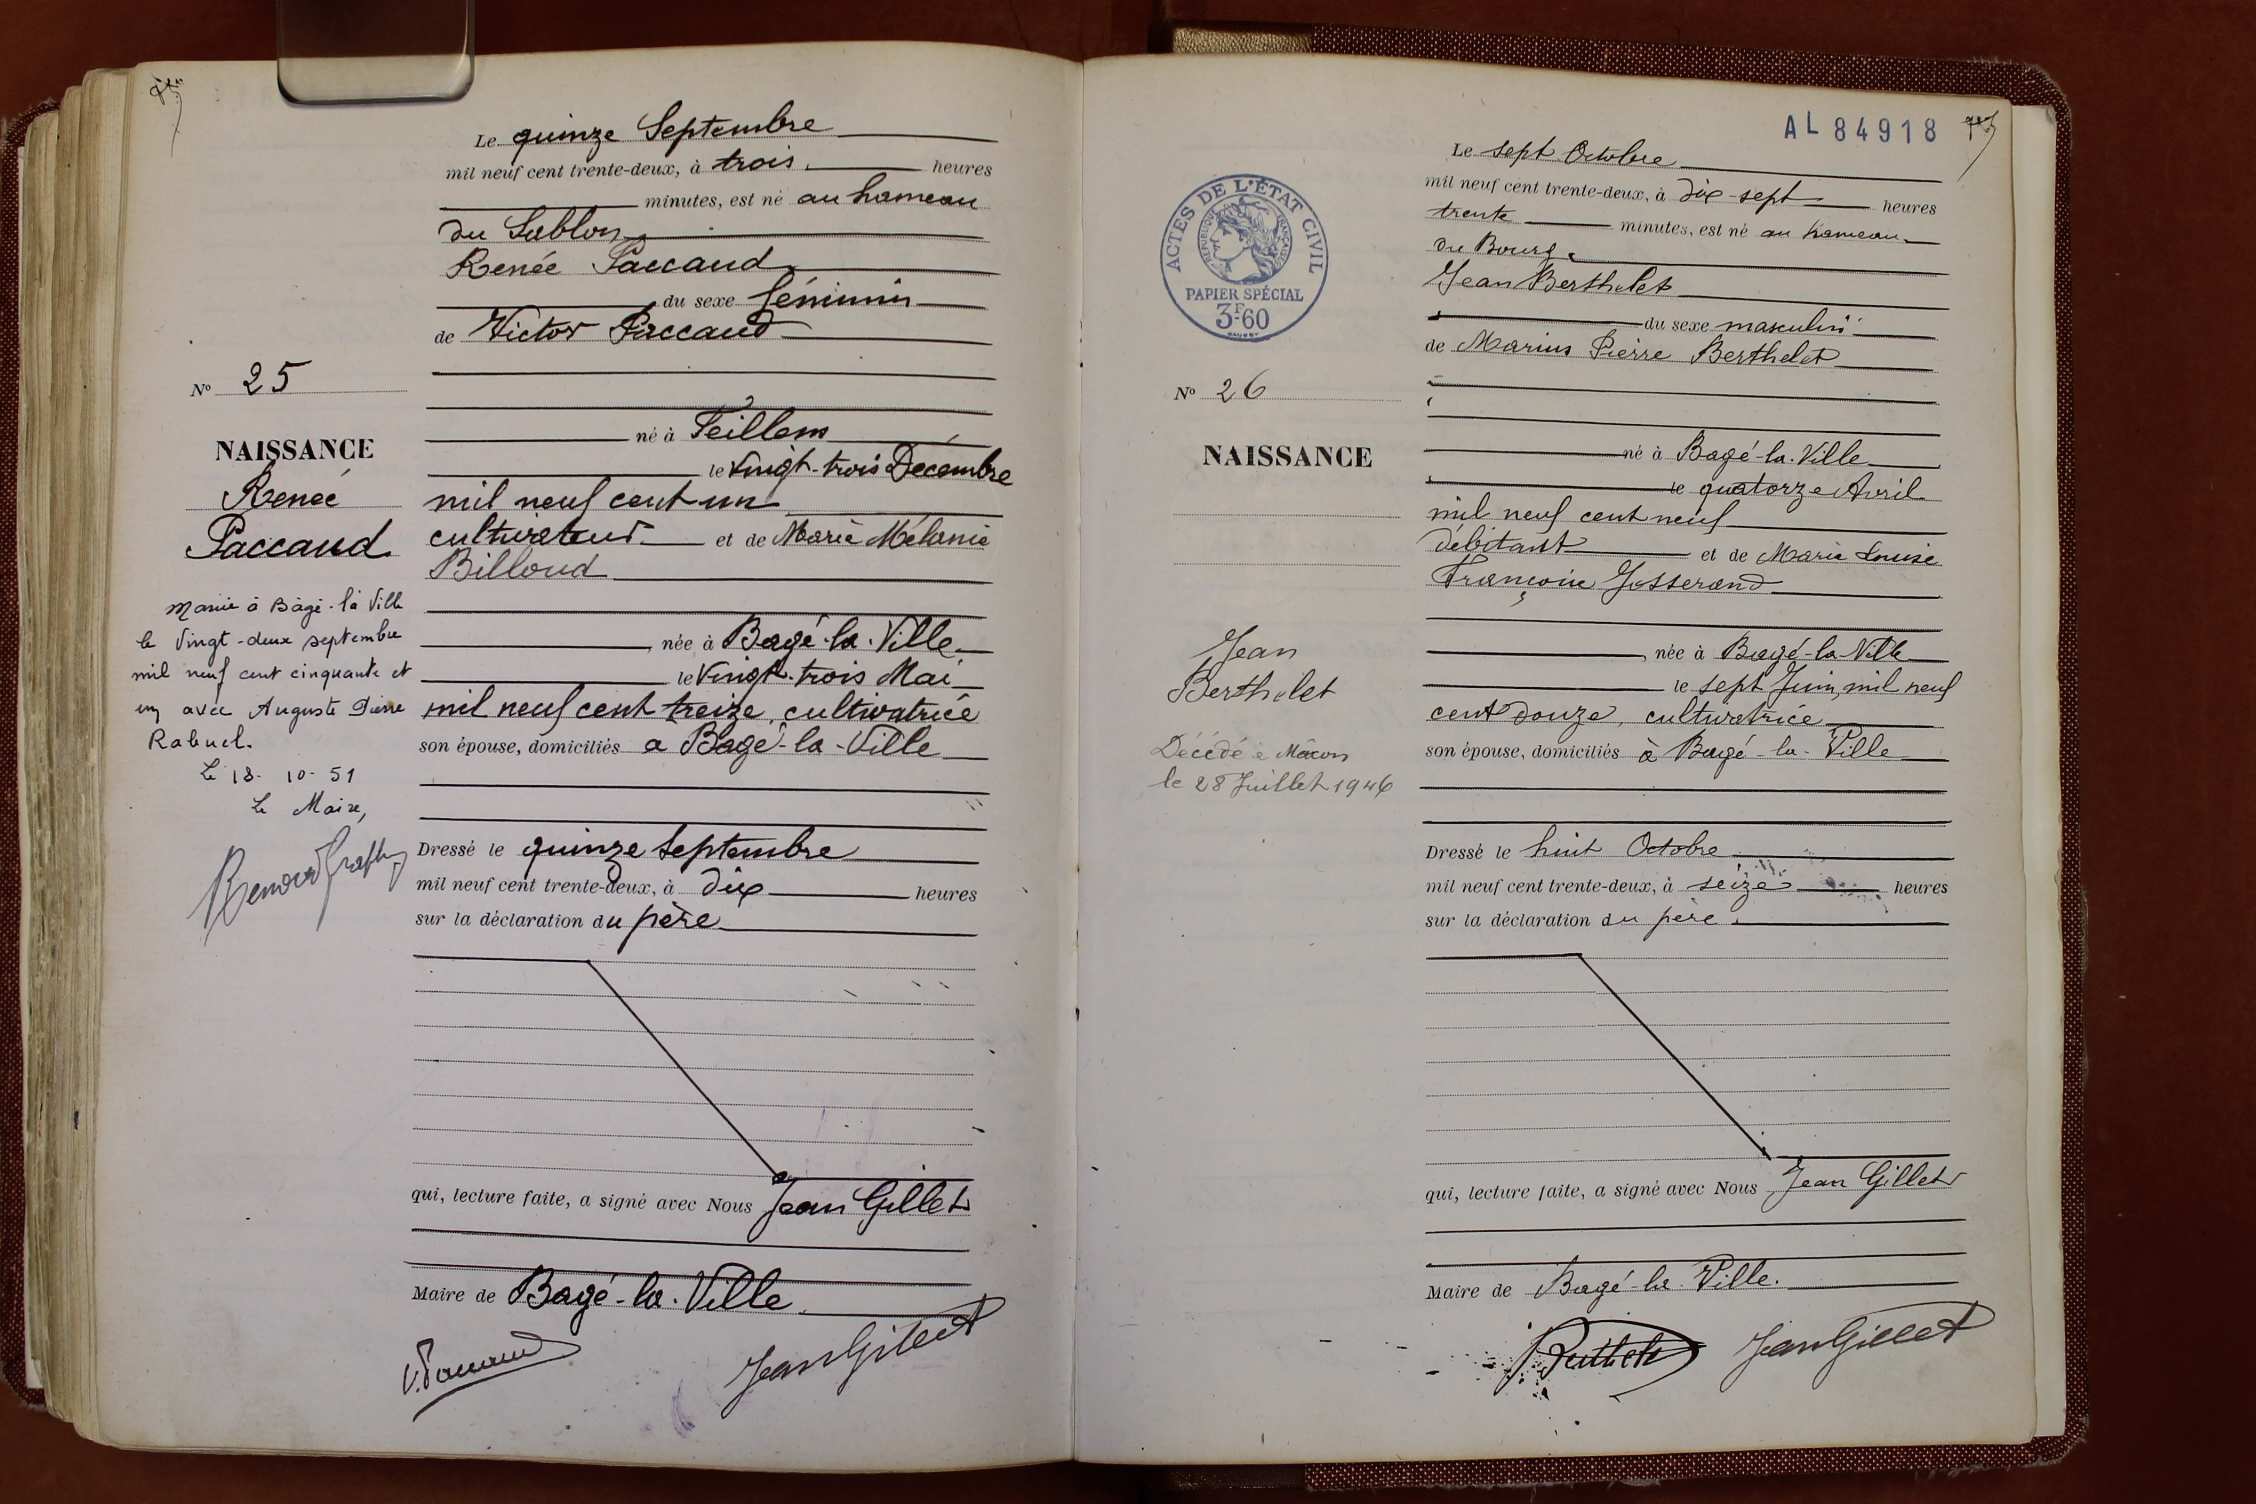 Le quinze Septembre
mil neuf cent trente-deux, à trois heures
minutes, est né au hameau
du Sablon
Renée Paccaud
du sexe féminin
de Victor Paccaud
né à Feillens
le vingt-trois Décembre
mil neuf cent un
cultivateur et de Marie Mélanie
Billoud
née à Bagé-la-Ville
le vingt-trois Mai
mil neuf cent treize, cultivatrice
son épouse, domiciliés à Bagé-la-Ville
Dressé le quinze Septembre
mil neuf cent trente-deux, à dix heures
sur la déclaration du père
qui, lecture faite, a signé avec Nous Jean Gillet
Maire de Bagé-la-Ville
V. Paccaud
Jean Gillet
No 25
NAISSANCE
Renée
Paccaud
Mariée à Bâgé-la Ville
le vingt-deux septembre
mil neuf cent cinquante et
un avec Auguste Pierre
Rabuel.
Le 18-10-51
Le Maire,
AL 84918
Le sept Octobre
mil neuf cent trente-deux, à dix-sept heures
trente minutes, est né au hameau
du Bourg
Jean Berthelet
du sexe masculin
de Marius Pierre Berthelet
né à Bagé-la-Ville
le quatorze Avril
mil neuf cent neuf
débitant et de Marie Louise
Françoise Josserand
née à Bagé-la-Ville
le sept Juin mil neuf
cent douze, cultivatrice
son épouse, domiciliés à Bagé-la-Ville
Dressé le huit Octobre
mil neuf cent trente-deux, à seize heures
sur la déclaration du père
qui, lecture faite, a signé avec Nous Jean Gillet
Maire de Bagé-la-Ville.
Jean Gillet
ACTES DE L'ÉTAT CIVIL
RÉPUBLIQUE FRANÇAISE
PAPIER SPÉCIAL
3F.60
No 26
NAISSANCE
Jean
Berthelet
Décédé à Mâcon
le 28 Juillet 1946